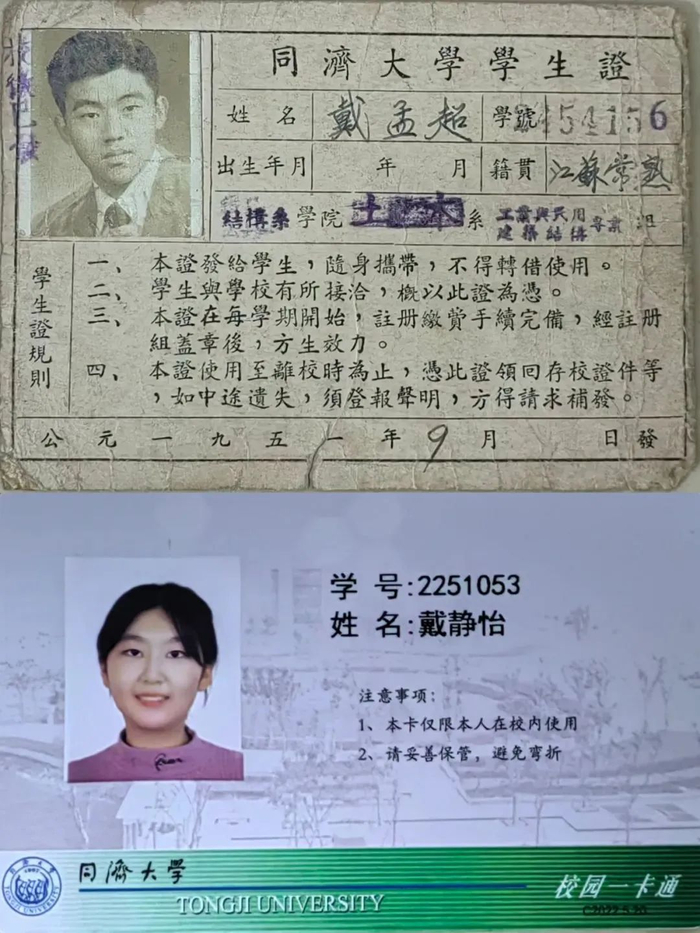 同濟大學學生證
姓名 戴孟超 學號 6
出生年月 年 月 籍貫 江蘇常熟
結構系 學院 土木 系 工業與民用建築結構專業 組
學生證規則
一、本證發給學生，隨身攜帶，不得轉借使用。
二、學生與學校有所接洽，概以此證為憑。
三、本證在每學期開始，註册繳費手續完備，經註册
組蓋章後，方生效力。
四、本證使用至離校時為止，憑此證領回存校證件等
，如中途遺失，須登報聲明，方得請求補發。
公元一九五一年9月 日發
学 号:2251053
姓 名:戴静怡
注意事项:
1、本卡仅限本人在校内使用
2、请妥善保管，避免弯折
同濟大学
TONGJI UNIVERSITY
校园一卡通